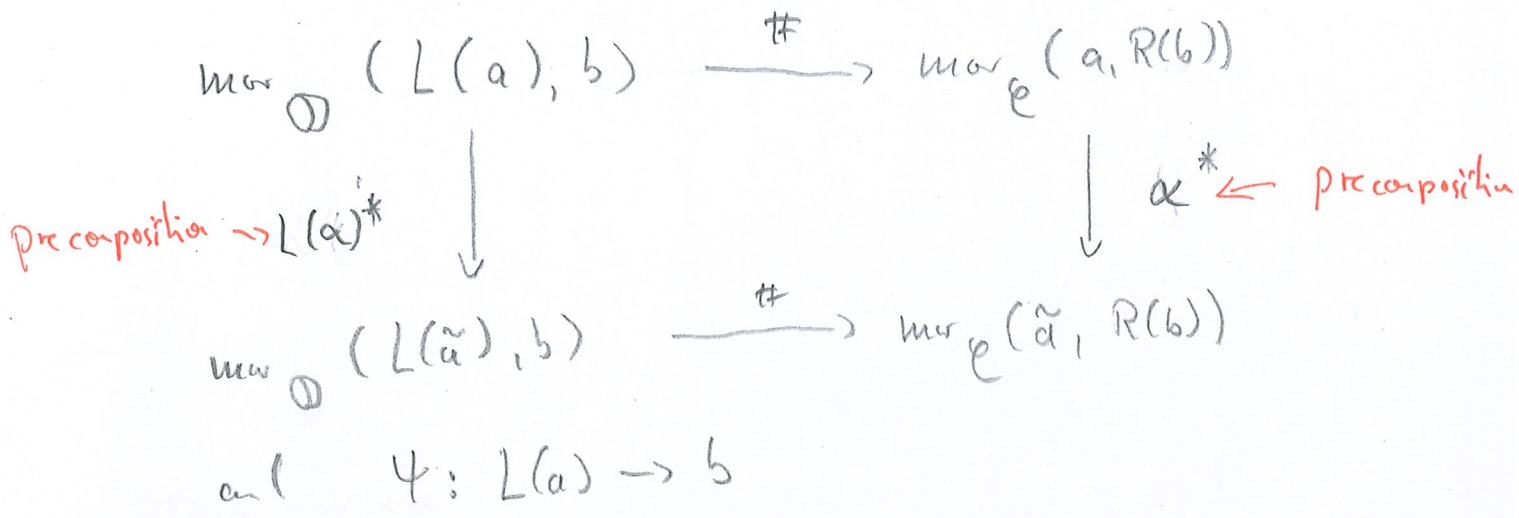 mor_𝒟 (L(a), b) —#→ mor_𝒞 (a, R(b))
precomposition → L(α)* ↓ ↓ α* ← precomposition
mor_𝒟 (L(ã), b) —#→ mor_𝒞 (ã, R(b))
and ψ: L(a) → b